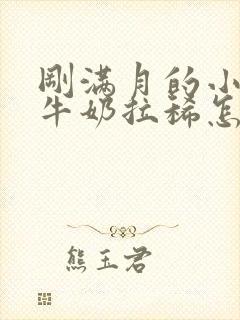 刚满月的小
牛奶拉稀怎
熊玉君